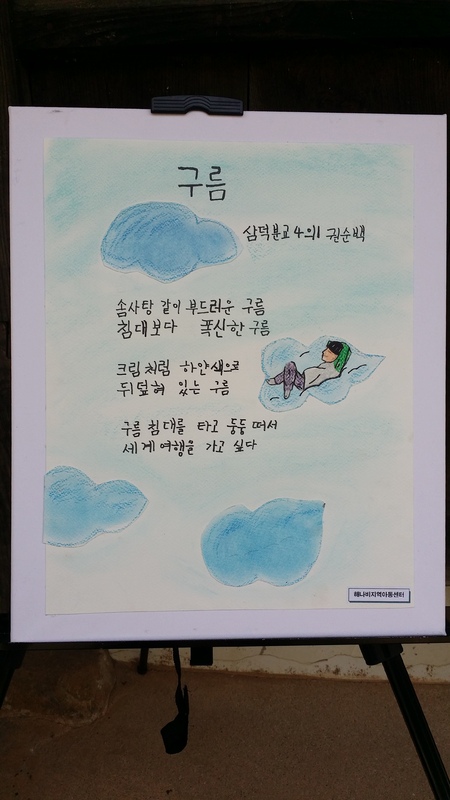 구름
삼덕분교 4의1 권순백
솜사탕 같이 부드러운 구름
침대보다 폭신한 구름
크림처럼 하얀색으로
뒤덮혀 있는 구름
구름 침대를 타고 둥둥 떠서
세계여행을 가고 싶다
해나비지역아동센터